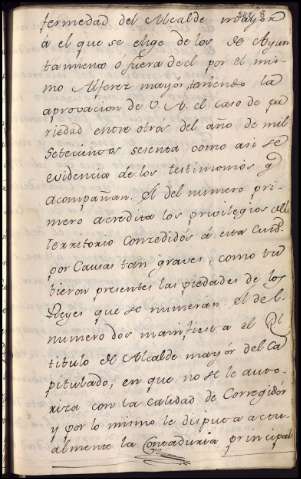 fermedad del Alcalde mayor
á el que se elige de los de Ayun
tamiento o fuera de el por el mis
mo Alferez mayor teniendo la
aprovacion de V. A. el caso de pa
riedad entre otros del año de mil
setecientos sesenta como asi se
evidencia de los testimonios q
acompañan. El del numero pri
mero acredita los privilegios
territorio Conzedidos á esta Ciud
por Causas tan graves, como tu
bieron presentes las piedades de los
Reyes que se numeran. el de el
numero dos manifiesta el Rl
titulo de Alcalde mayor del Ca
pitulado, en que no se le auto
riza con la calidad de Corregidor
y por lo mismo le disputa actu
almente la Contaduria principal